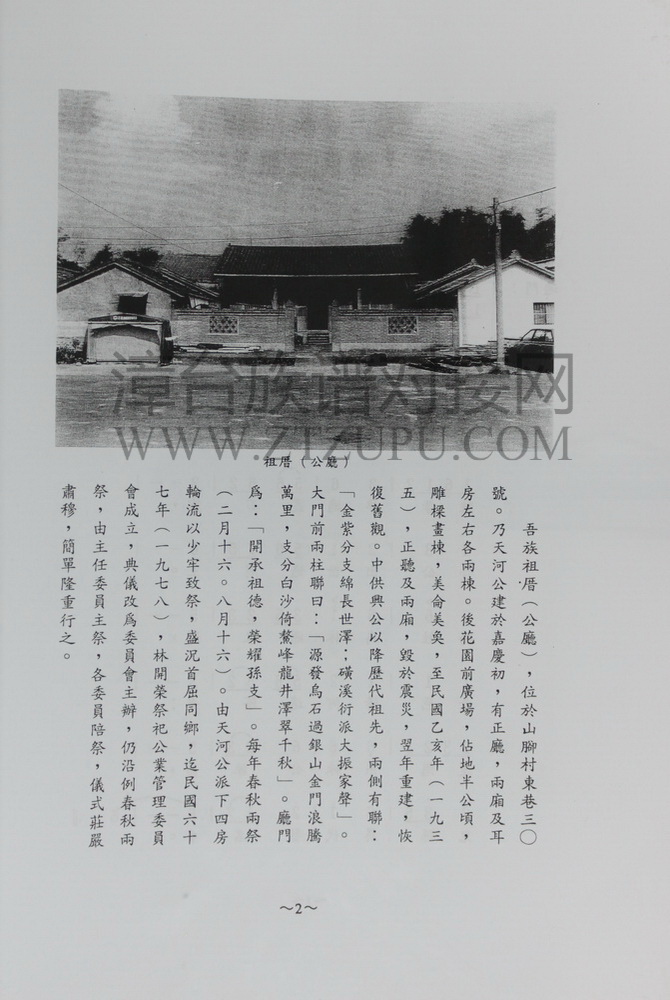 漳台族谱对接网
WWW.ZTZUPU.COM
祖厝（公廳）
吾族祖厝（公廳），位於山腳村東巷三〇
號。乃天河公建於嘉慶初，有正廳，兩廂及耳
房左右各兩棟。後花園前廣場，佔地半公頃，
雕樑畫棟，美侖美奐，至民國乙亥年（一九三
五），正聽及兩廂，毀於震災，翌年重建，恢
復舊觀。中供興公以降歷代祖先，兩側有聯：
「金紫分支綿長世澤；磺溪衍派大振家聲」。
大門前兩柱聯曰：「源發烏石過銀山金門浪騰
萬里，支分白沙倚鰲峰龍井澤翠千秋」。廳門
為：「開承祖德，榮耀孫支」。每年春秋兩祭
（二月十六。八月十六）。由天河公派下四房
輪流以少牢致祭，盛況首屈同鄉，迄民國六十
七年（一九七八），林開榮祭祀公業管理委員
會成立，典儀改為委員會主辦，仍沿例春秋兩
祭，由主任委員主祭，各委員陪祭，儀式莊嚴
肅穆，簡單隆重行之。
～2～